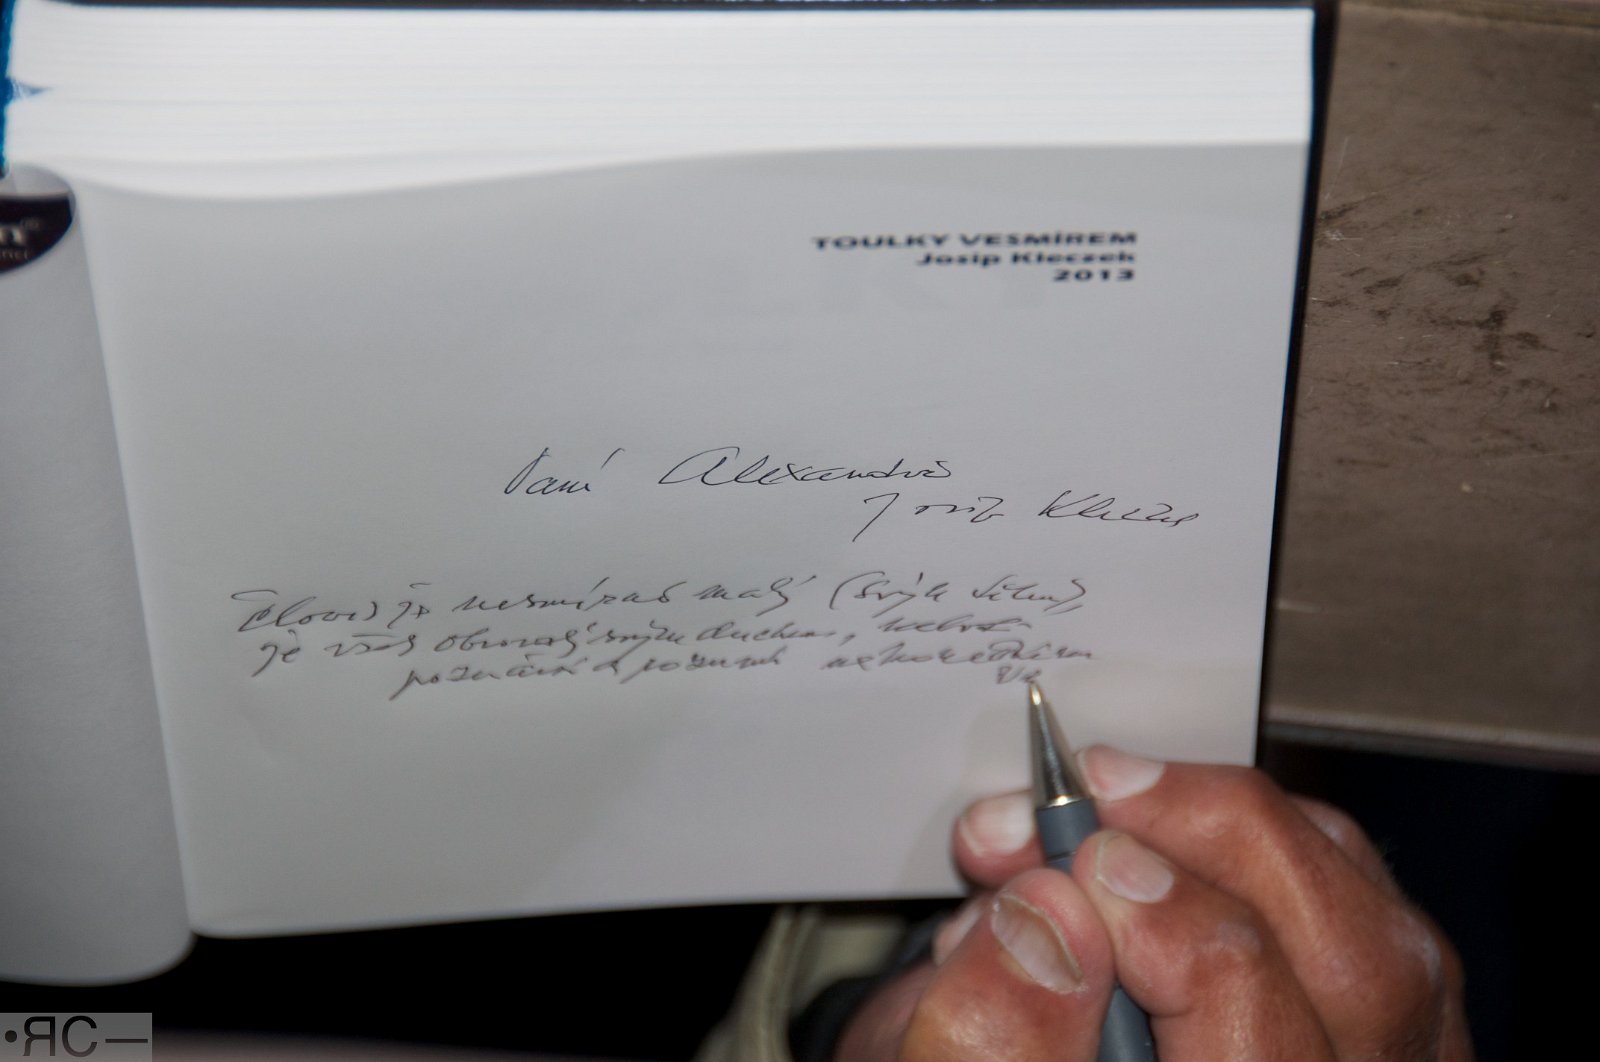 TOULKY VESMÍREM
Josip Kleczek
2013
Paní Alexandra
Josip Kleczek
Člověk je nesmírně malý (svým tělem),
je však obrovský svým duchem, neboť
poznává a rozumí nekonečnému
•ЯC—